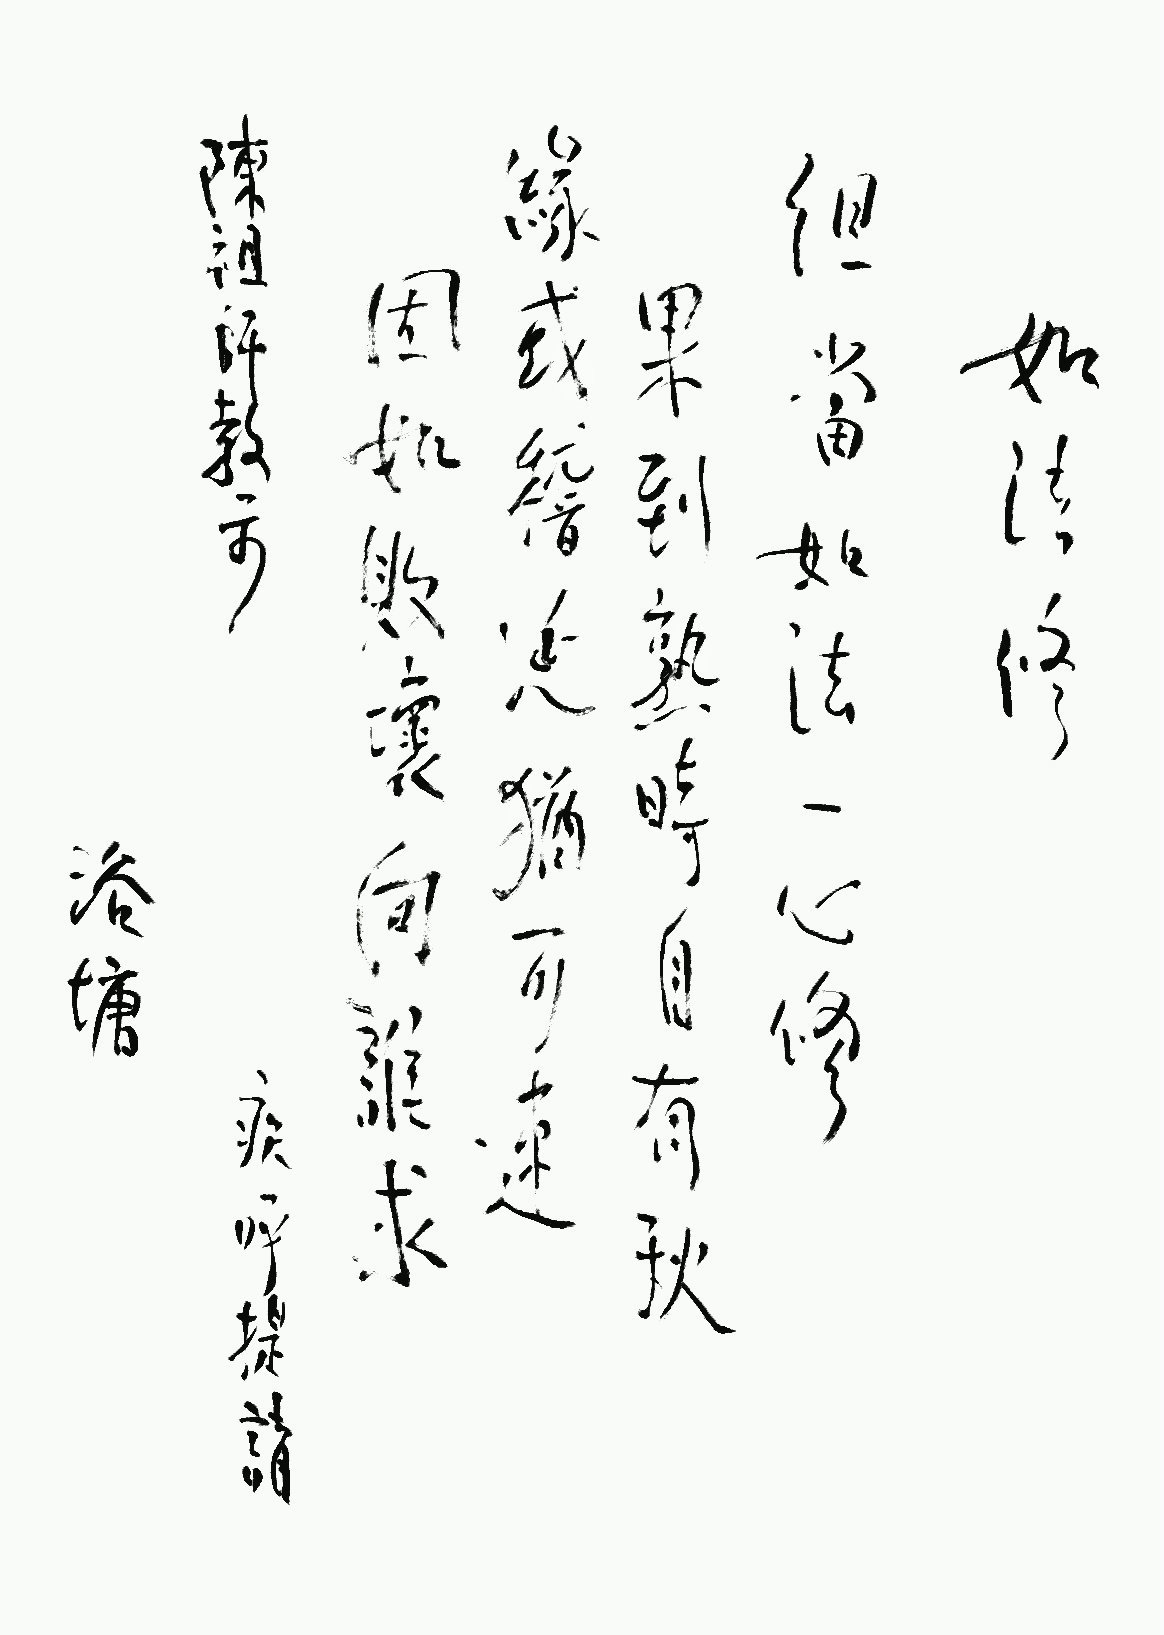 如法修
但當如法一心修
果到熟時自有秋
緣或稽遲猶可速
因如敗壞向誰求
陳祖師教示
疾呼提請
浴墉